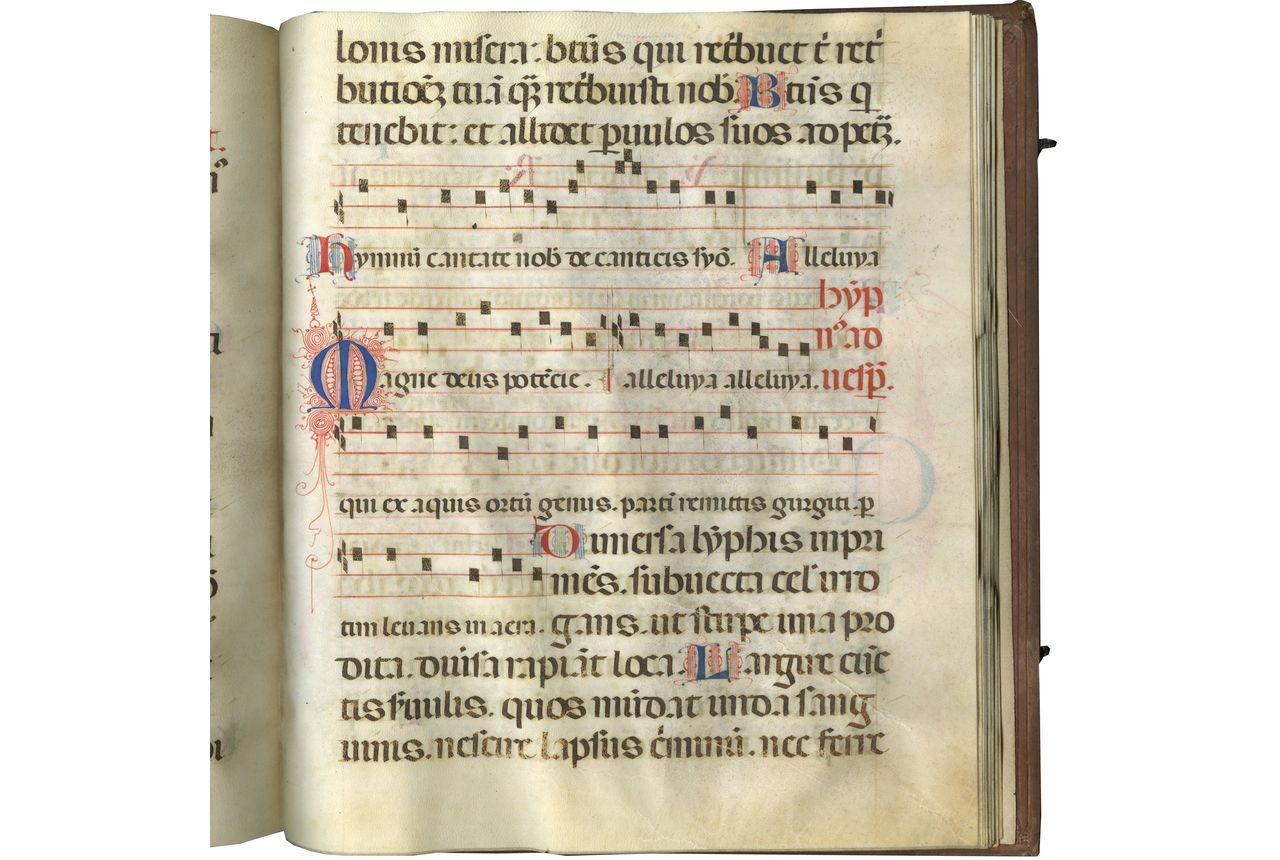 lonis misera: btūs qui rētbuet t̄ rēt
butiōeʒ tuā q̄ʒ rētbuisti nob̄. Btūs q
tenebit: et allidet puulos suos ad petʒ.
hymnū cantate nob̄ de canticis syō. Alleluya
hȳp
nº ad
Magne deus potēcie. alleluya alleluya. uesp̄.
qui ex aquis ortū genus. partī remittis gurgiti. p
Dimersa lȳphis inpri
mēs. subuecta cel' irro
tim leuans in aera. gans. ut stirpe una pro
dita. diuisa rapiāt loca. Largire cūc
tis s'uulis. quos mūdat unda sang
uinis. nescire lapsus c'minū. nec ferre